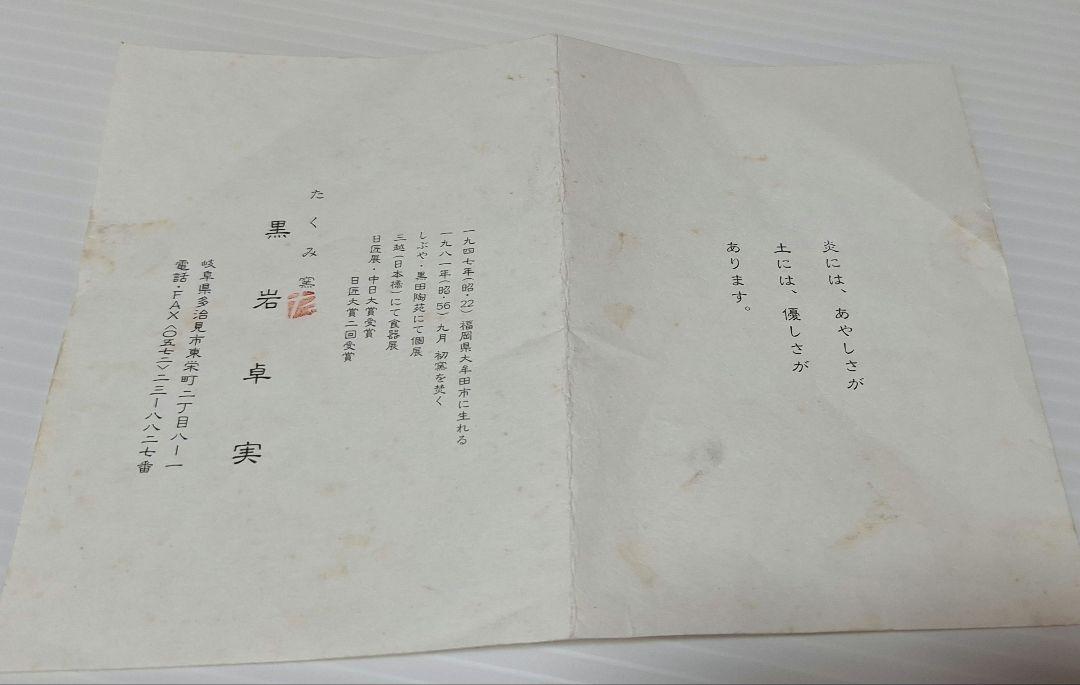 炎には、あやしさが
土には、優しさが
あります。
一九四七年(昭・22) 福岡県大牟田市に生れる
一九八一年(昭・56) 九月 初窯を焚く
しぶや・黒田陶苑にて個展
三越(日本橋)にて食器展
日匠展・中日大賞受賞
日匠大賞二回受賞
たくみ窯
黒岩卓実
岐阜県多治見市東栄町二丁目八ー一
電話・FAX〈〇五七二〉二三ー八八二七番